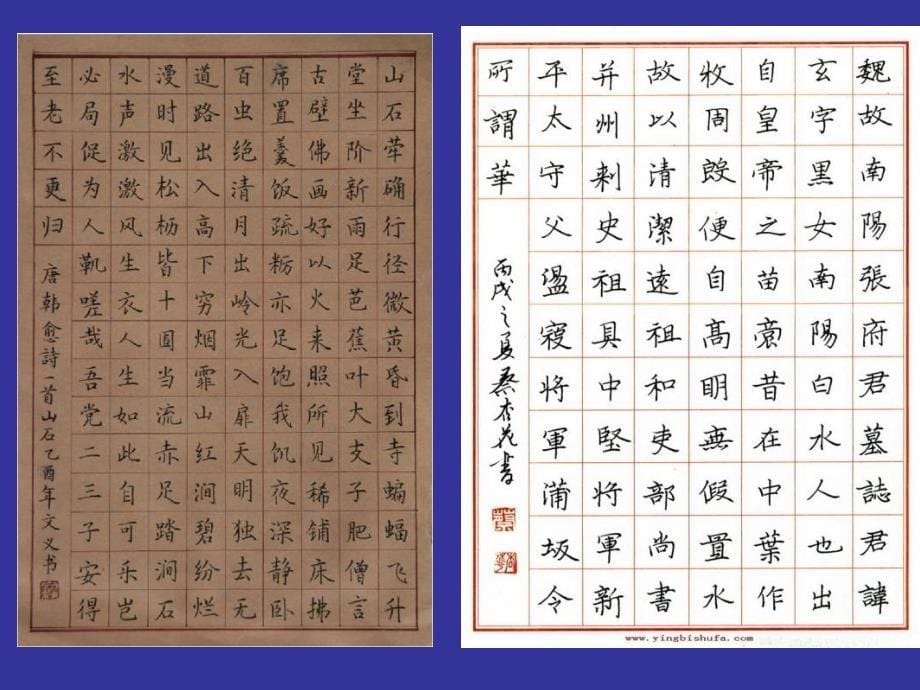 山石荦确行径微黄昏到寺蝙蝠飞升
堂坐阶新雨足芭蕉叶大支子肥僧言
古壁佛画好以火来照所见稀铺床拂
席置羹饭疏粝亦足饱我饥夜深静卧
百虫绝清月出岭光入扉天明独去无
道路出入高下穷烟霏山红涧碧纷烂
漫时见松枥皆十圆当流赤足踏涧石
水声激激风生衣人生如此自可乐岂
必局促为人鞿嗟哉吾党二三子安得
至老不更归
唐韩愈詩一首山石乙酉年文义书
魏故南陽張府君墓誌君諱
玄字黑女南陽白水人也出
自皇帝之苗裔昔在中葉作
牧周殷便自高明無假置水
故以清潔遠祖和吏部尚書
并州刺史祖具中堅將軍新
平太守父盪寇將軍蒲坂令
所謂華
丙戌之夏蔡杏花書
www.yingbishufa.com